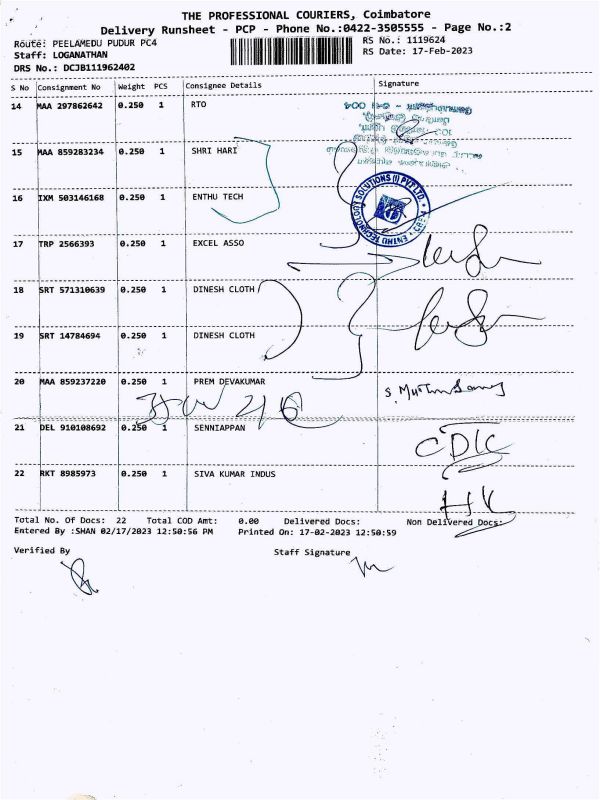 THE PROFESSIONAL COURIERS, Coimbatore
Delivery Runsheet - PCP - Phone No.:0422-3505555 - Page No.:2
Route: PEELAMEDU PUDUR PC4 RS No.: 1119624
Staff: LOGANATHAN RS Date: 17-Feb-2023
DRS No.: DCJB111962402
S No Consignment No Weight PCS Consignee Details Signature
14 MAA 297862642 0.250 1 RTO
15 MAA 859283234 0.250 1 SHRI HARI
16 IXM 503146168 0.250 1 ENTHU TECH
ENTHU TECHNOLOGY SOLUTIONS (I) PVT LTD.
17 TRP 2566393 0.250 1 EXCEL ASSO
18 SRT 571310639 0.250 1 DINESH CLOTH
19 SRT 14784694 0.250 1 DINESH CLOTH
20 MAA 859237220 0.250 1 PREM DEVAKUMAR
21 DEL 910108692 0.250 1 SENNIAPPAN
22 RKT 8985973 0.250 1 SIVA KUMAR INDUS
Total No. Of Docs: 22 Total COD Amt: 0.00 Delivered Docs: Non Delivered Docs:
Entered By :SHAN 02/17/2023 12:50:56 PM Printed On: 17-02-2023 12:50:59
Verified By Staff Signature